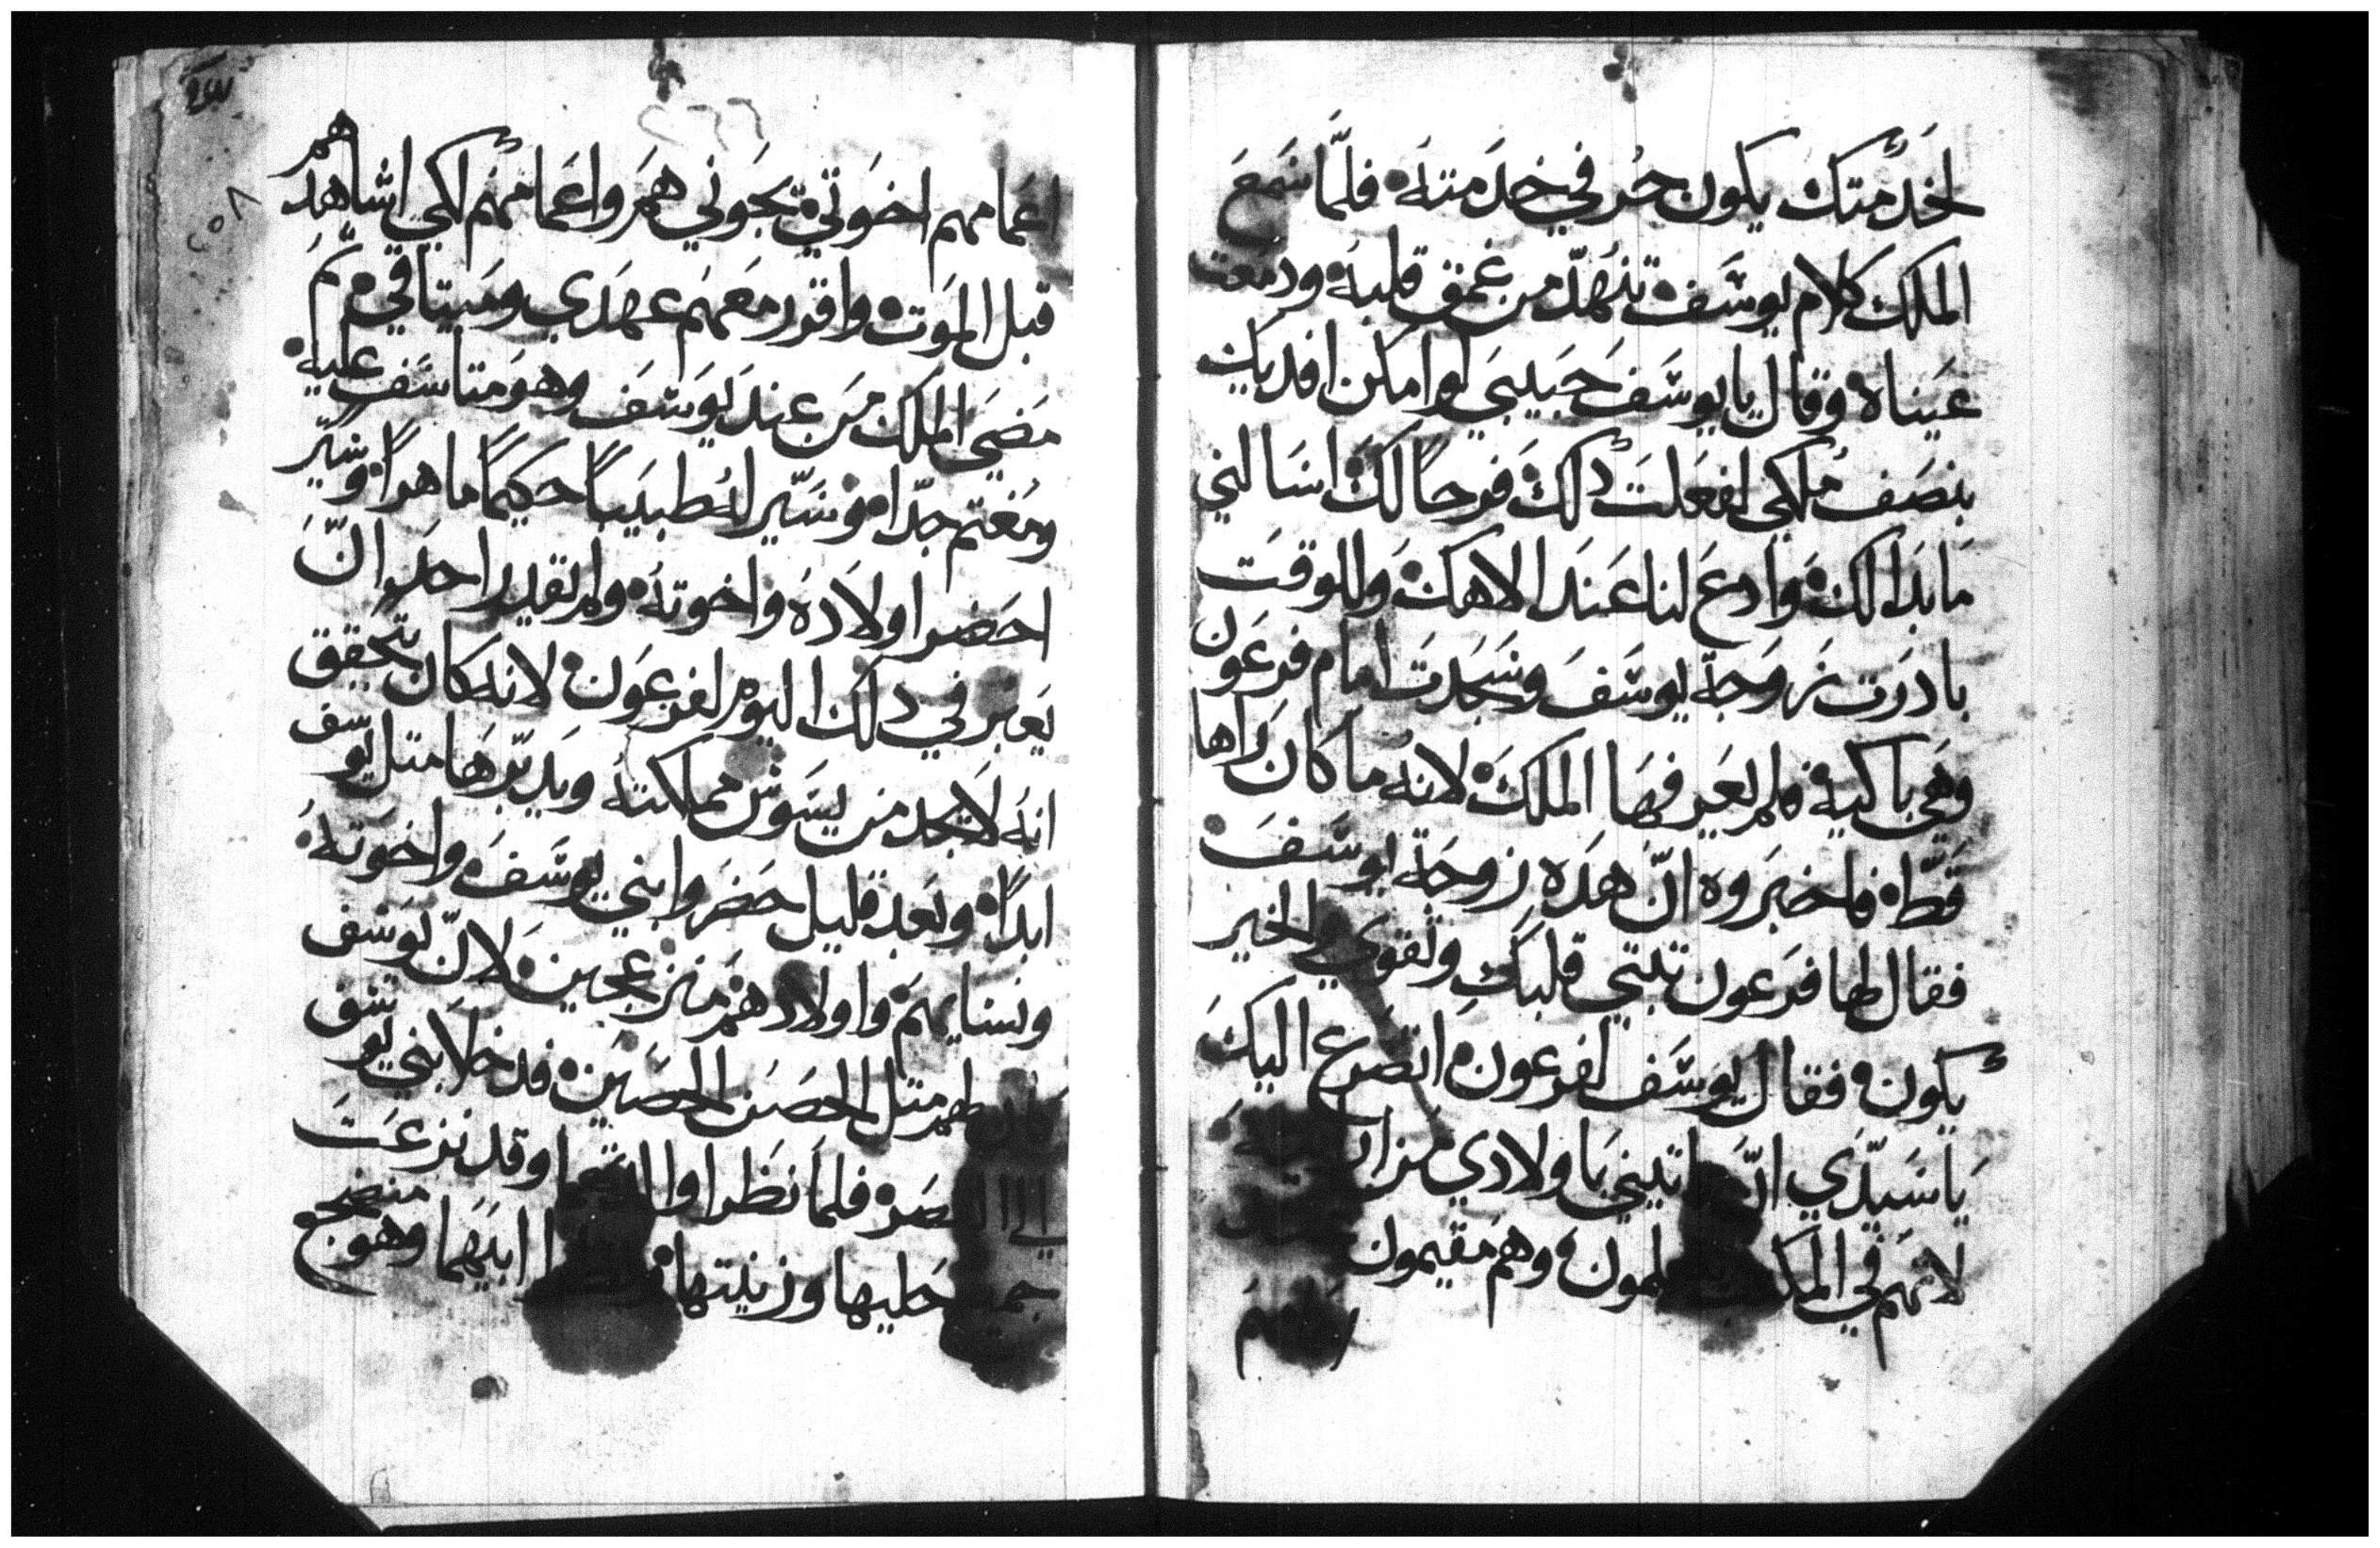 لخدمتك يكون حر في خدمته فلمّا سمع
الملك كلام يوسف تنهّد من عمق قلبه ودمعت
عيناه وقال يا يوسف حبيبي لو امكن افديك
بنصف ملكي لفعلت دلك فرحا لك اسالني
ما بدا لك وادع لنا عند الاهك وللوقت
بادرت زوجة يوسف وسجدت امام فرعون
وهي باكية ولم يعرفها الملك لانه ما كان راها
قطّ فاخبروه انّ هده زوجة يوسف
فقال لها فرعون تبتي قلبك وتقوي والخير
يكون فقال يوسف لفرعون اتضرع اليك
يا سيّدي ان تاتيني باولادي من
لانهم في يتعلمون وهم مقيمون
اعمامهم اخوتي يجوني هم واعمامهم لكي اشاهدهم
قبل الموت واقرر معهم عهدي وميتاقي تم
مضي الملك من عند يوسف وهو متاسف عليه
ومغتم جدّا وسيّر له طبيبا حكيما ماهرا وسيّر
احضر اولاده واخوته ولم يقدر احد انّ
يعبر في دلك اليوم لفرعون لانه كان يتحقق
انه لا يجد من يسوس مملكته ويدبّرها متل يوسف
ابدا وبعد قليل حضروا بني يوسف واخوته
ونسايهم واولادهم منزعجين لانّ يوسف
كان لهم متل الحصن الحصين فدخلا بني يوسف
الي فلما نظرا وقد نزعت
جميع حليها وزينتها ابيهما وهو منضجع